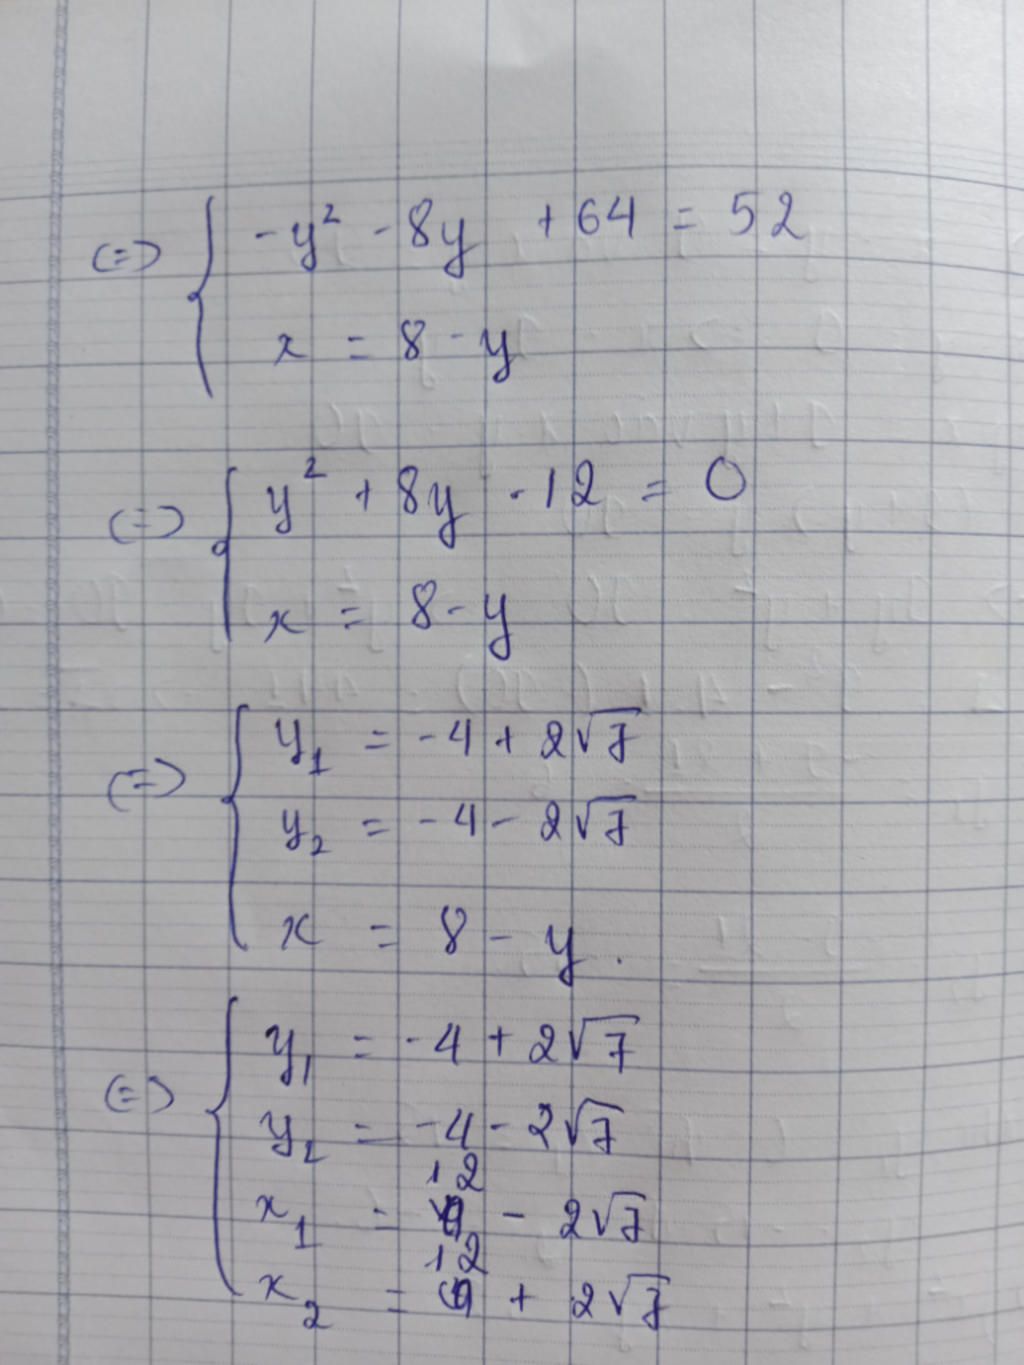 (=) { -y² - 8y + 64 = 52
x = 8 - y
(=) { y² + 8y - 12 = 0
x = 8 - y
(=) { y₁ = -4 + 2√7
y₂ = -4 - 2√7
x = 8 - y.
(=) { y₁ = -4 + 2√7
y₂ = -4 - 2√7
12
x₁ = - 2√7
12
x₂ = + 2√7